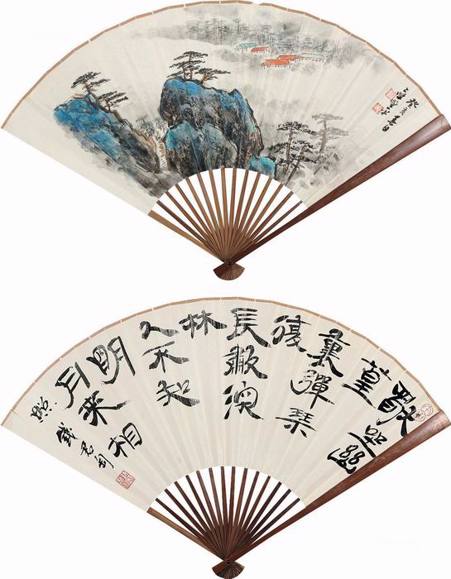 獨坐幽
篁
裏彈琴
復
長歗深
林
人不知
明
月來相
照